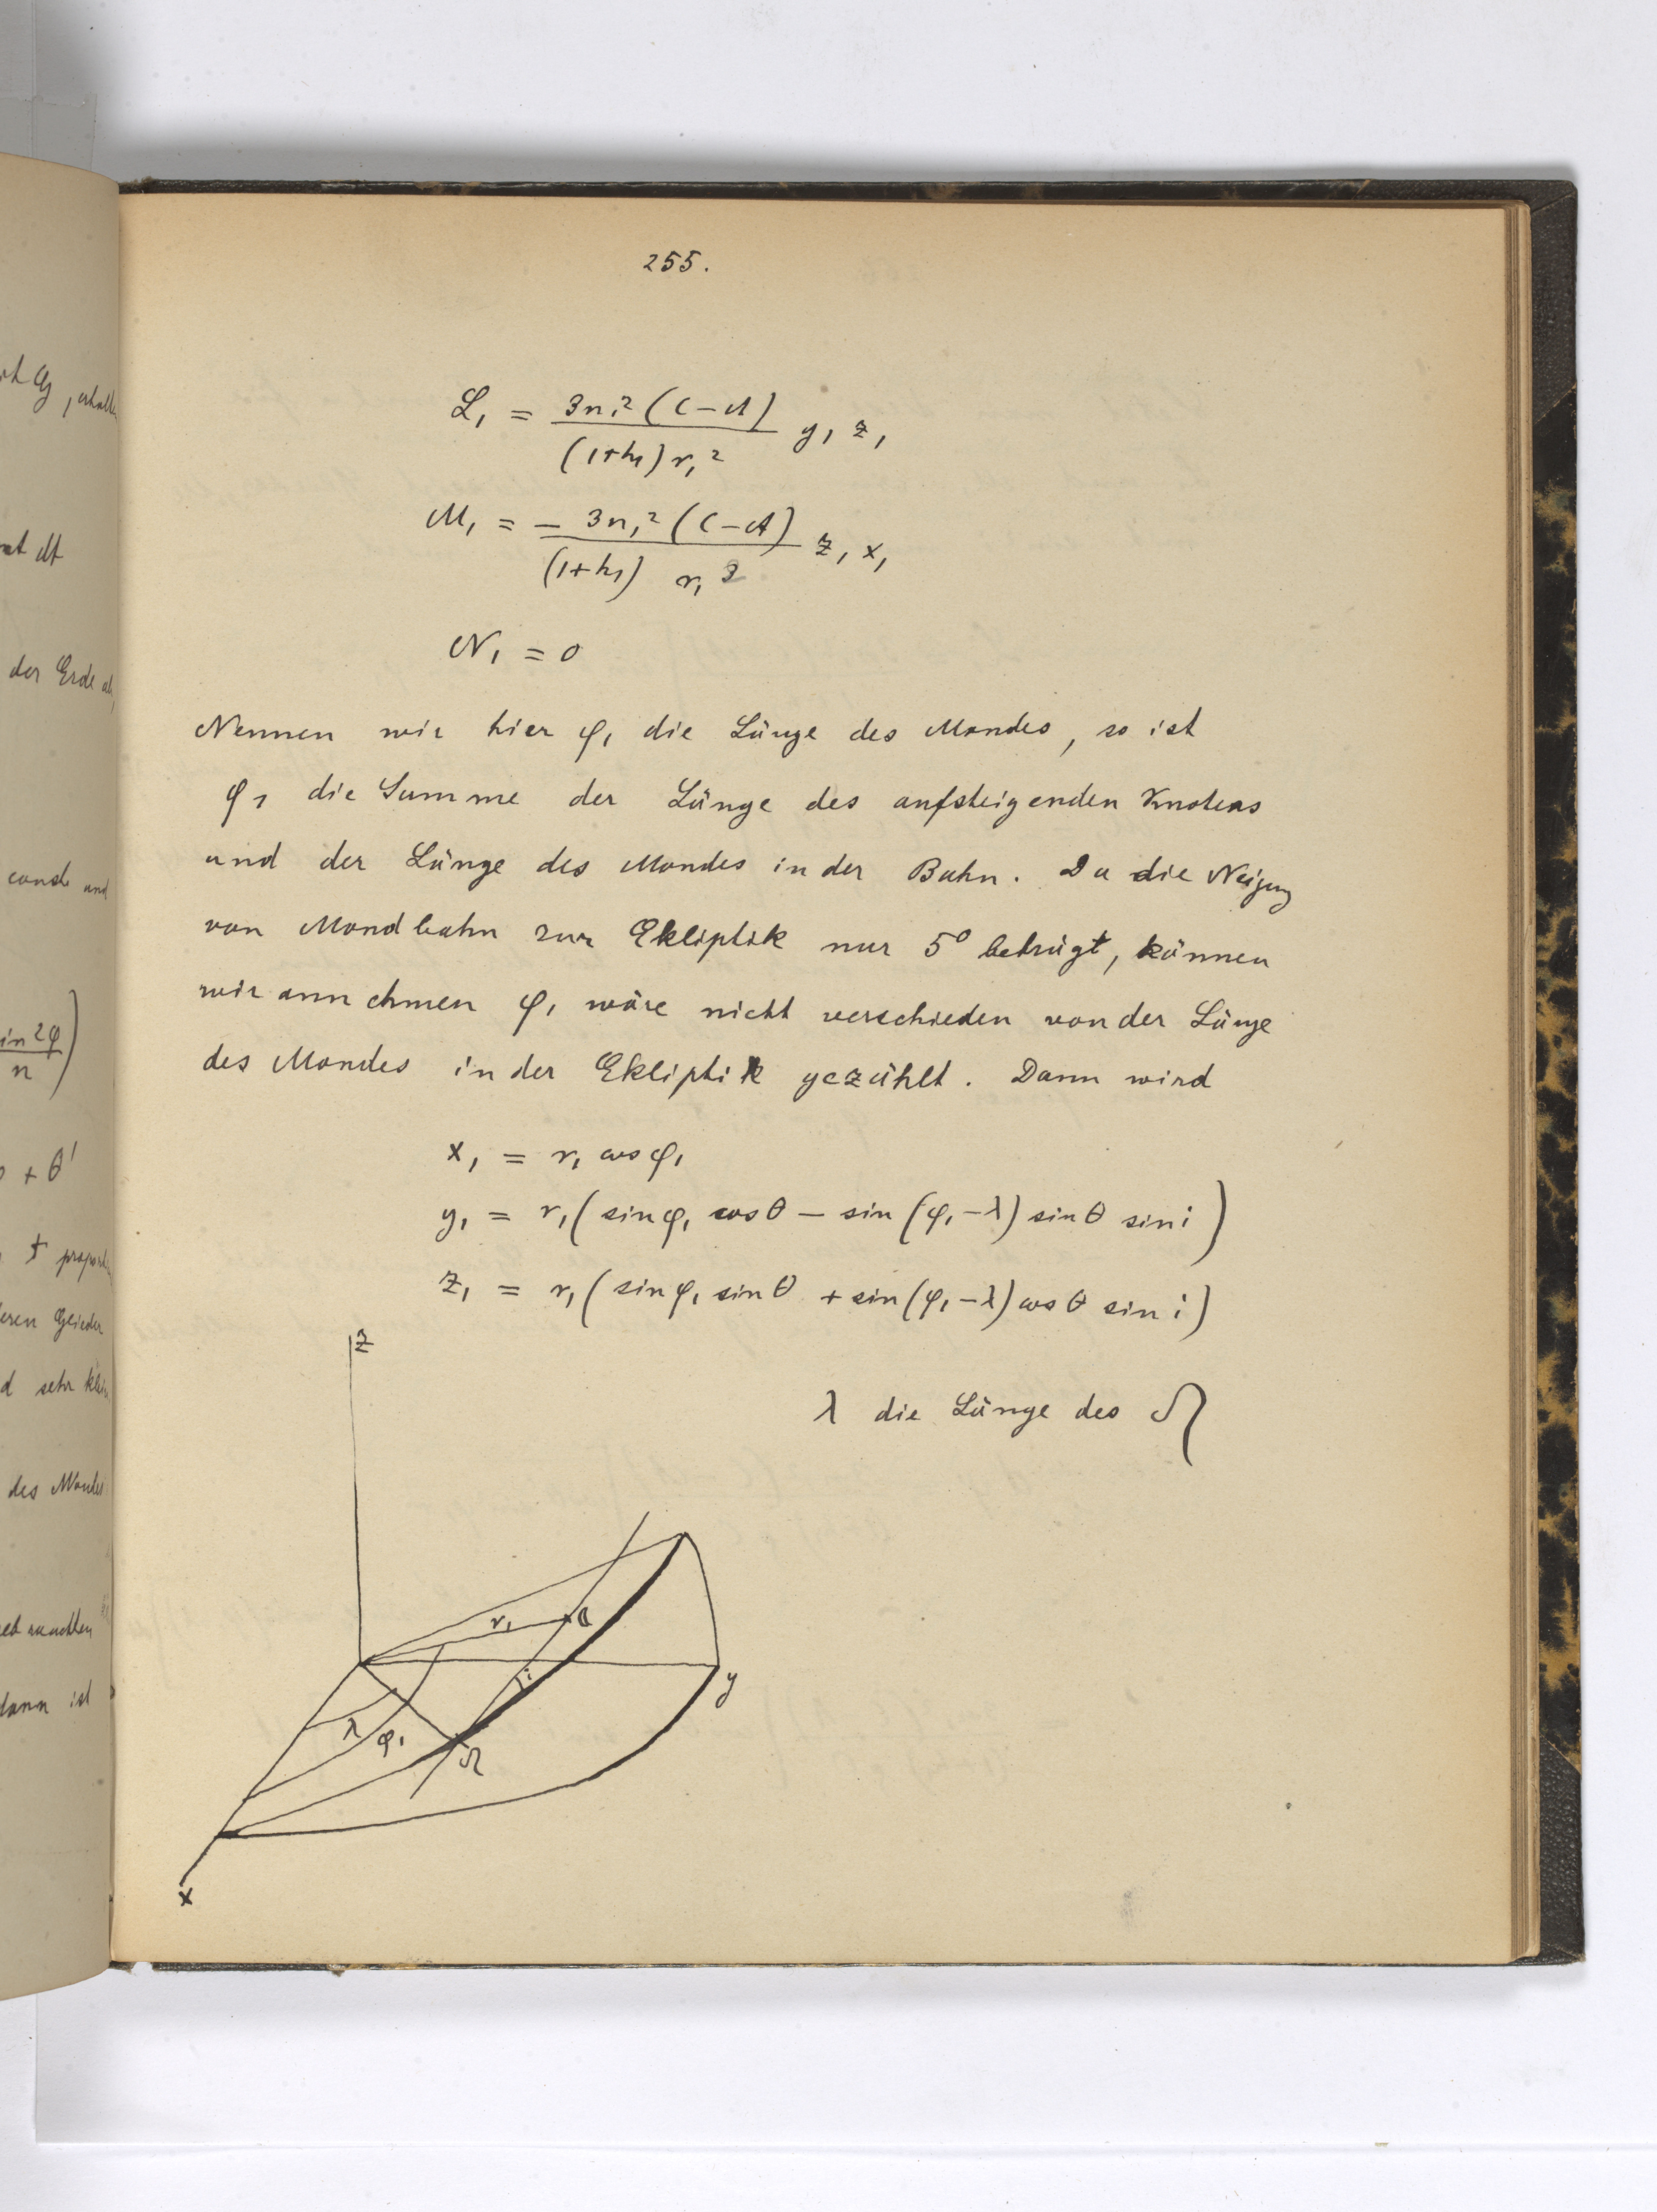 255.
L₁ = 3n₁² (C-A) / (1+h₁) r₁² y₁ z₁
M₁ = - 3n₁² (C-A) / (1+h₁) r₁² z₁ x₁
N₁ = 0
Nennen wir hier φ₁ die Länge des Mondes, so ist
φ₁ die Summe der Länge des aufsteigenden Knotens
und der Länge des Mondes in der Bahn. Da die Neigung
von Mondbahn zur Ekliptik nur 5⁰ beträgt, können
wir annehmen φ₁ wäre nicht verschieden von der Länge
des Mondes in der Ekliptik gezählt. Dann wird
x₁ = r₁ cos φ₁
y₁ = r₁ ( sin φ₁ cos θ - sin (φ₁ - λ) sin θ sin i )
z₁ = r₁ ( sin φ₁ sin θ + sin (φ₁ - λ) cos θ sin i )
λ die Länge des ☊
z
r₁
i
y
λ
φ₁
☊
x
der Erde
sin 2φ
n
+ θ'
des Mondes
dann ist